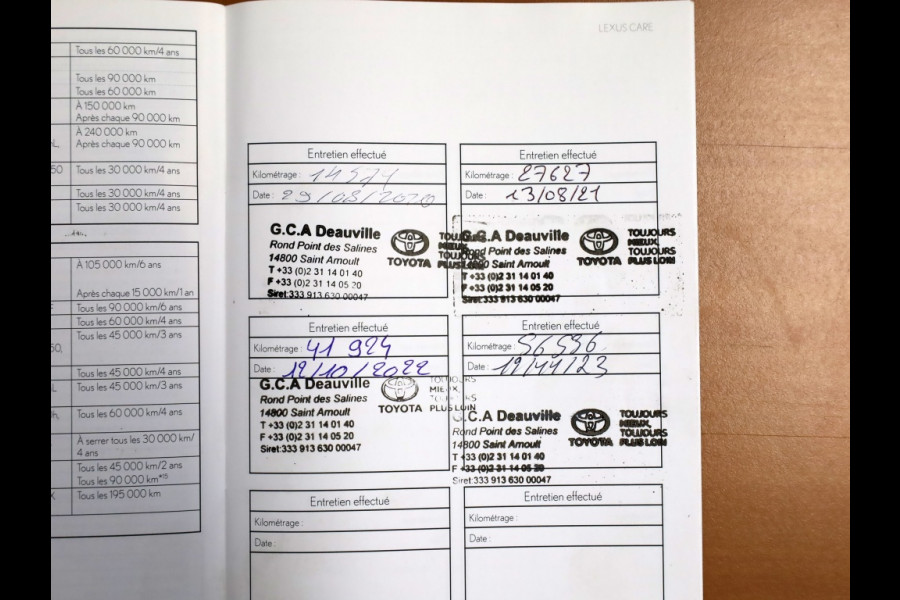 Tous les 60 000 km/4 ans
Tous les 90 000 km
Tous les 60 000 km
À 150 000 km
Après chaque 90 000 km
À 240 000 km
Après chaque 90 000 km
Tous les 30 000 km/4 ans
Tous les 30 000 km/4 ans
Tous les 30 000 km/4 ans
À 105 000 km/6 ans
Après chaque 15 000 km/1 an
Tous les 90 000 km/6 ans
Tous les 60 000 km/4 ans
Tous les 45 000 km/3 ans
Tous les 45 000 km/4 ans
Tous les 45 000 km/3 ans
Tous les 60 000 km/4 ans
À serrer tous les 30 000 km/
4 ans
Tous les 45 000 km/2 ans
Tous les 90 000 km*15
Tous les 195 000 km
LEXUS CARE
Entretien effectué
Kilométrage :
Date : 29/08/2020
G.C.A Deauville
Rond Point des Salines
14800 Saint Arnoult
T +33 (0)2 31 14 01 40
F +33 (0)2 31 14 05 20
Siret:333 913 630 00047
TOYOTA
TOUJOURS
MIEUX,
TOUJOURS
PLUS LOIN
Entretien effectué
Kilométrage : 27627
Date : 13/08/21
G.C.A Deauville
Rond Point des Salines
14800 Saint Arnoult
T +33 (0)2 31 14 01 40
F +33 (0)2 31 14 05 20
Siret:333 913 630 00047
TOYOTA
TOUJOURS
MIEUX,
TOUJOURS
PLUS LOIN
Entretien effectué
Kilométrage : 41 924
Date : 12/10/2022
G.C.A Deauville
Rond Point des Salines
14800 Saint Arnoult
T +33 (0)2 31 14 01 40
F +33 (0)2 31 14 05 20
Siret:333 913 630 00047
TOYOTA
TOUJOURS
MIEUX,
TOUJOURS
PLUS LOIN
Entretien effectué
Kilométrage : 56596
Date : 12/11/23
G.C.A Deauville
Rond Point des Salines
14800 Saint Arnoult
T +33 (0)2 31 14 01 40
F +33 (0)2 31 14 05 20
Siret:333 913 630 00047
TOYOTA
TOUJOURS
MIEUX,
TOUJOURS
PLUS LOIN
Entretien effectué
Kilométrage :
Date :
Entretien effectué
Kilométrage :
Date :